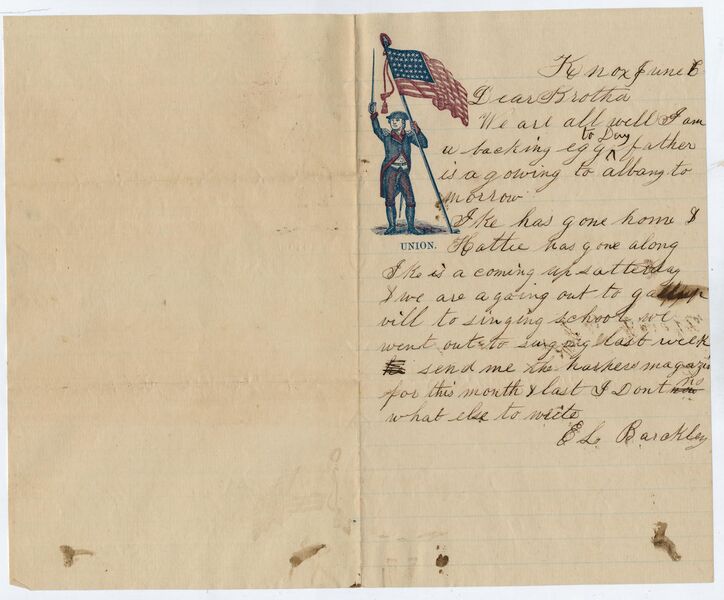 Knox June 6
Dear Brotha
We are all well I am
a backing egg to Day father
is a gowing to albany to
morrow
Ike has gone home &
Hattie has gone along
Ike is a coming up satterday
& we are a going out to gallup
vill to singing school we
went out to surging last week
send me the harpers magazin
for this month & last I Dont no
what else to write
E L Barckley
UNION.